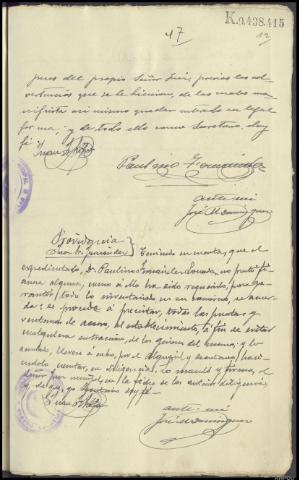 K.9,438,415
47
12
jurez del propio Señor Juez, previas las ad-
vertencias que se le hicieron, de las cuales ma-
nifiesta asi mismo quedar enterado en legal
forma, y de todo ello como Secretario, doy
fé
Paulino Fernandez
ante mi
José M Dominguez
Providencia
Teniendo en cuenta, que el
expedientado, D. Paulino Fernández no prestó fi-
anza alguna, como á ello ha sido requerido, para ga-
rantir todo lo inventariado en su comercio, se acuer-
da: se proceda á precintar, todas las puertas y
ventanas de acceso, al establecimiento, á fin de evitar
cualquiera extracción, de los géneros del mismo, y lo
acordado, llévese á cabo, por el Alguacil y Secretario, hacién-
dolo constar, en diligencia, lo mandó y firma, el
Señor Juez municipal en la fecha de las anteriores diligencias,
de lo que yo Secretario doy fé-
ante mi
José M Dominguez